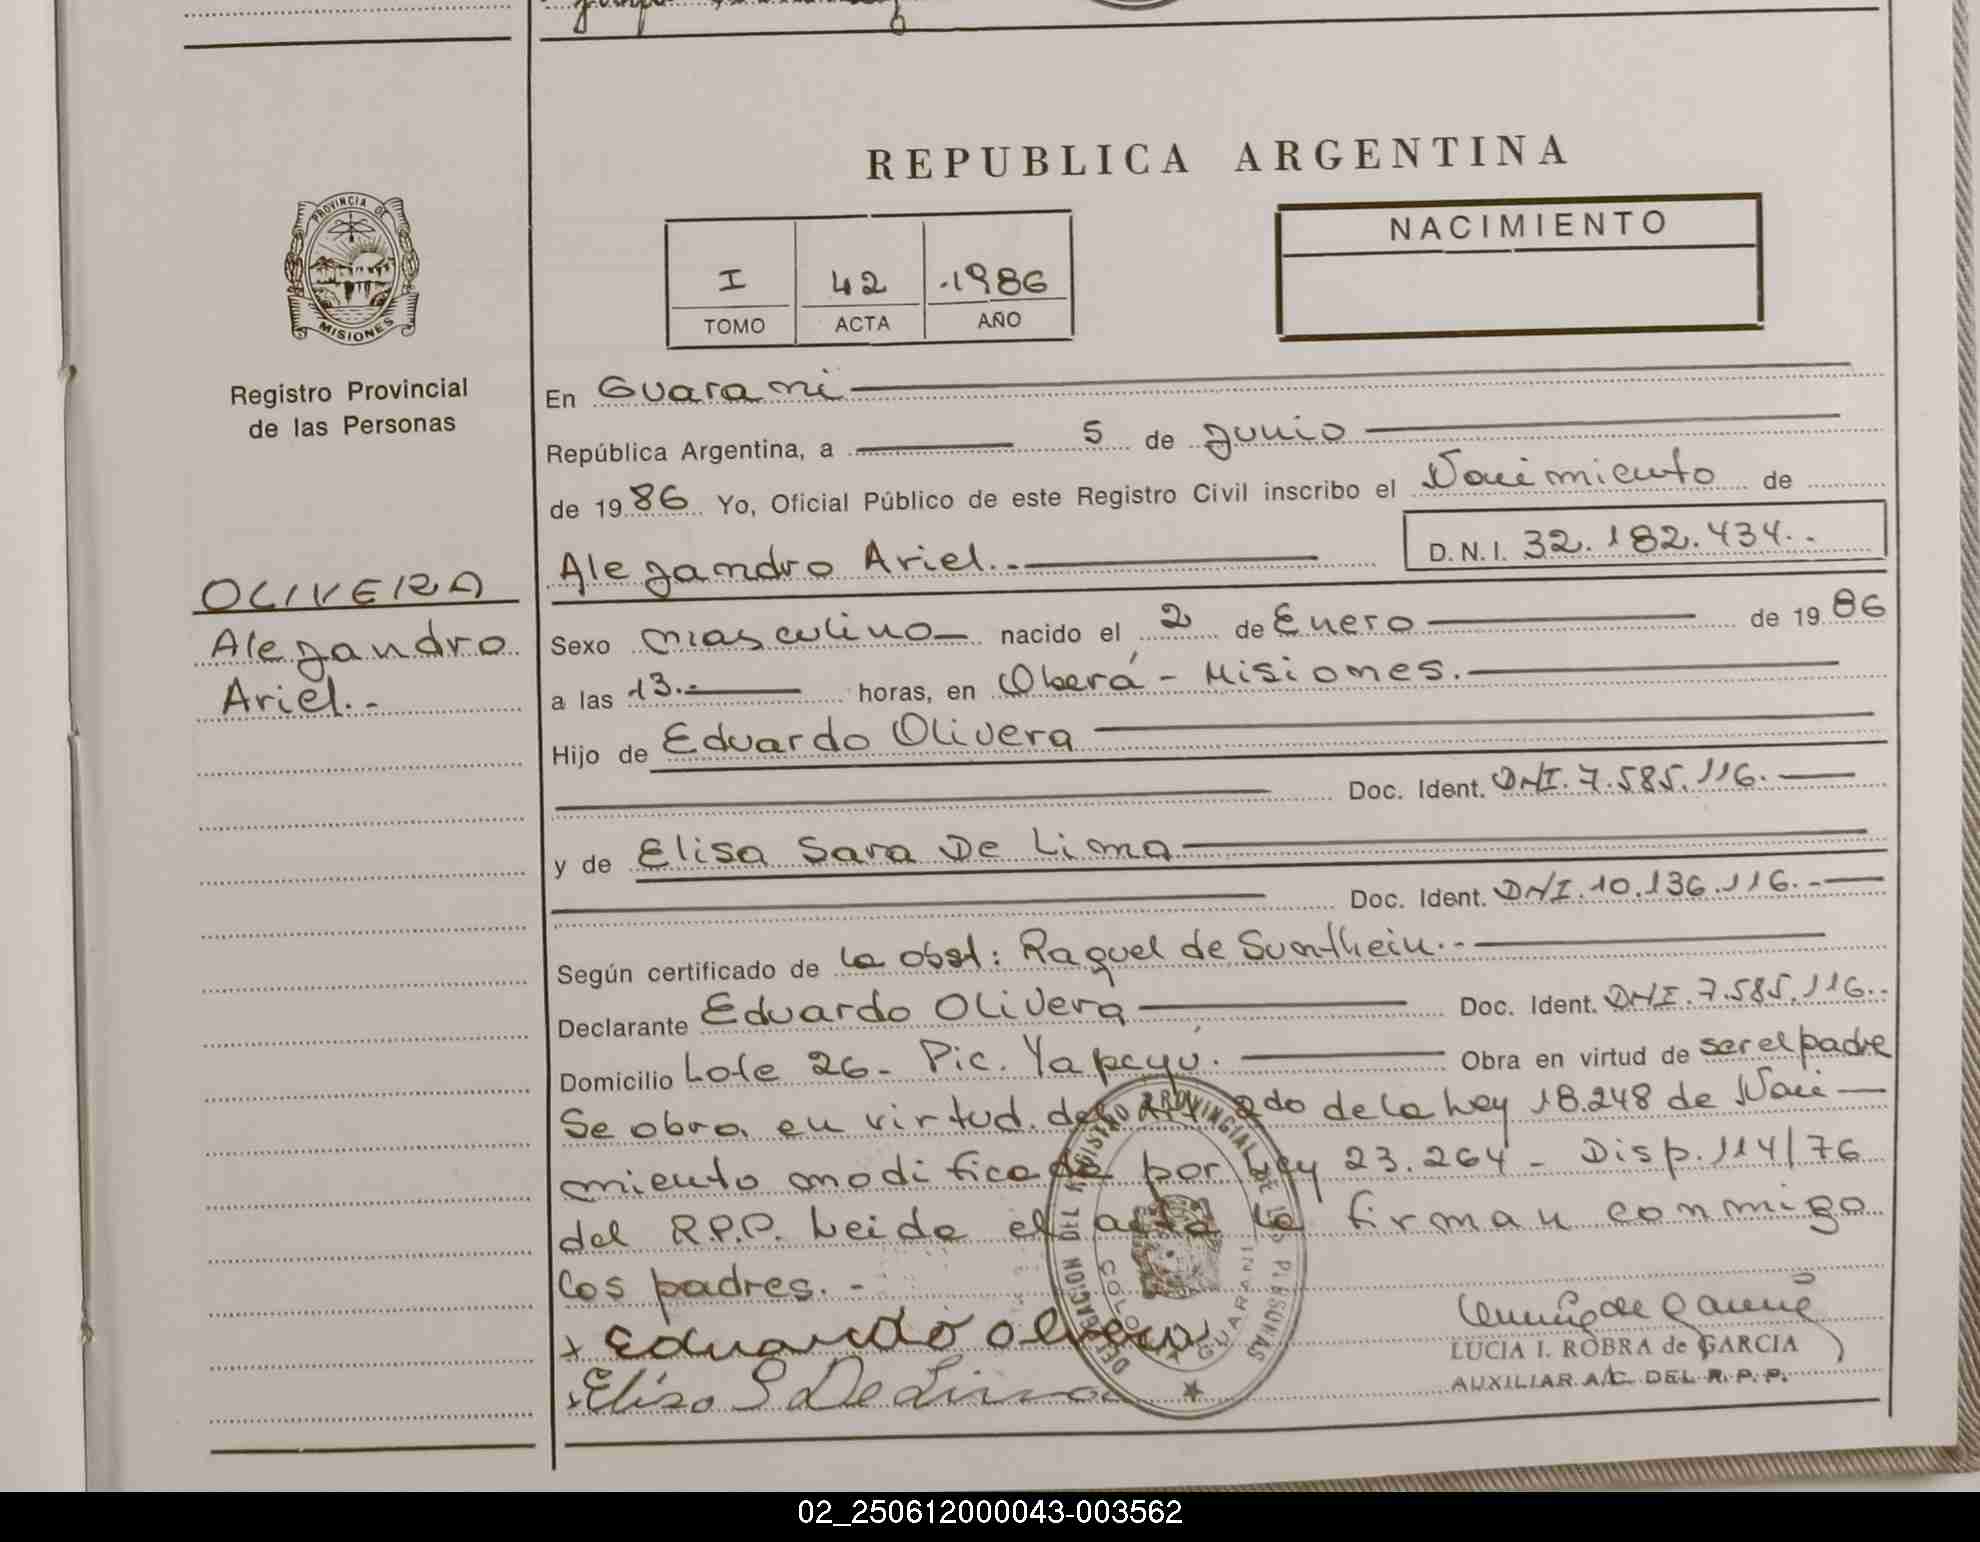 REPUBLICA ARGENTINA
PROVINCIA DE
MISIONES
Registro Provincial
de las Personas
I 42 1986
TOMO ACTA AÑO
NACIMIENTO
En Guarani
República Argentina, a 5 de Junio
de 1986 Yo, Oficial Público de este Registro Civil inscribo el Nacimiento de
Alejandro Ariel.- D.N.I. 32.182.434.-
OLIVERA
Alejandro
Ariel.-
Sexo masculino nacido el 2 de Enero de 1986
a las 13.- horas, en Oberá - Misiones.
Hijo de Eduardo Olivera
Doc. Ident. DNI. 7.585.116.
y de Elisa Sara De Lima
Doc. Ident. DNI. 10.136.116.-
Según certificado de la obst: Raquel de Sunthein.-
Declarante Eduardo Olivera Doc. Ident. DNI. 7.585.116.-
Domicilio Lote 26- Pic. Yapeyú. Obra en virtud de ser el padre
Se obra en virtud del Art 2do de la Ley 18.248 de Naci-
miento modificada por Ley 23.264 - Disp. 114/76
del R.P.P. Leida el acta la firman conmigo
los padres.-
x Eduardo Olivera
x Elisa S De Lima
DELEGACION DEL REGISTRO PROVINCIAL DE LAS PERSONAS
GUARANI
LUCIA I. ROBRA de GARCIA
AUXILIAR A/C. DEL R.P.P.
02_250612000043-003562